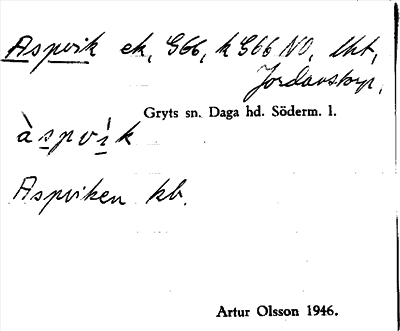 Aspvik ek, G66, k G66 NO, lht,
Jordanstorp,
Gryts sn. Daga hd. Söderm. l.
àspvìk
Aspviken kb.
Artur Olsson 1946.